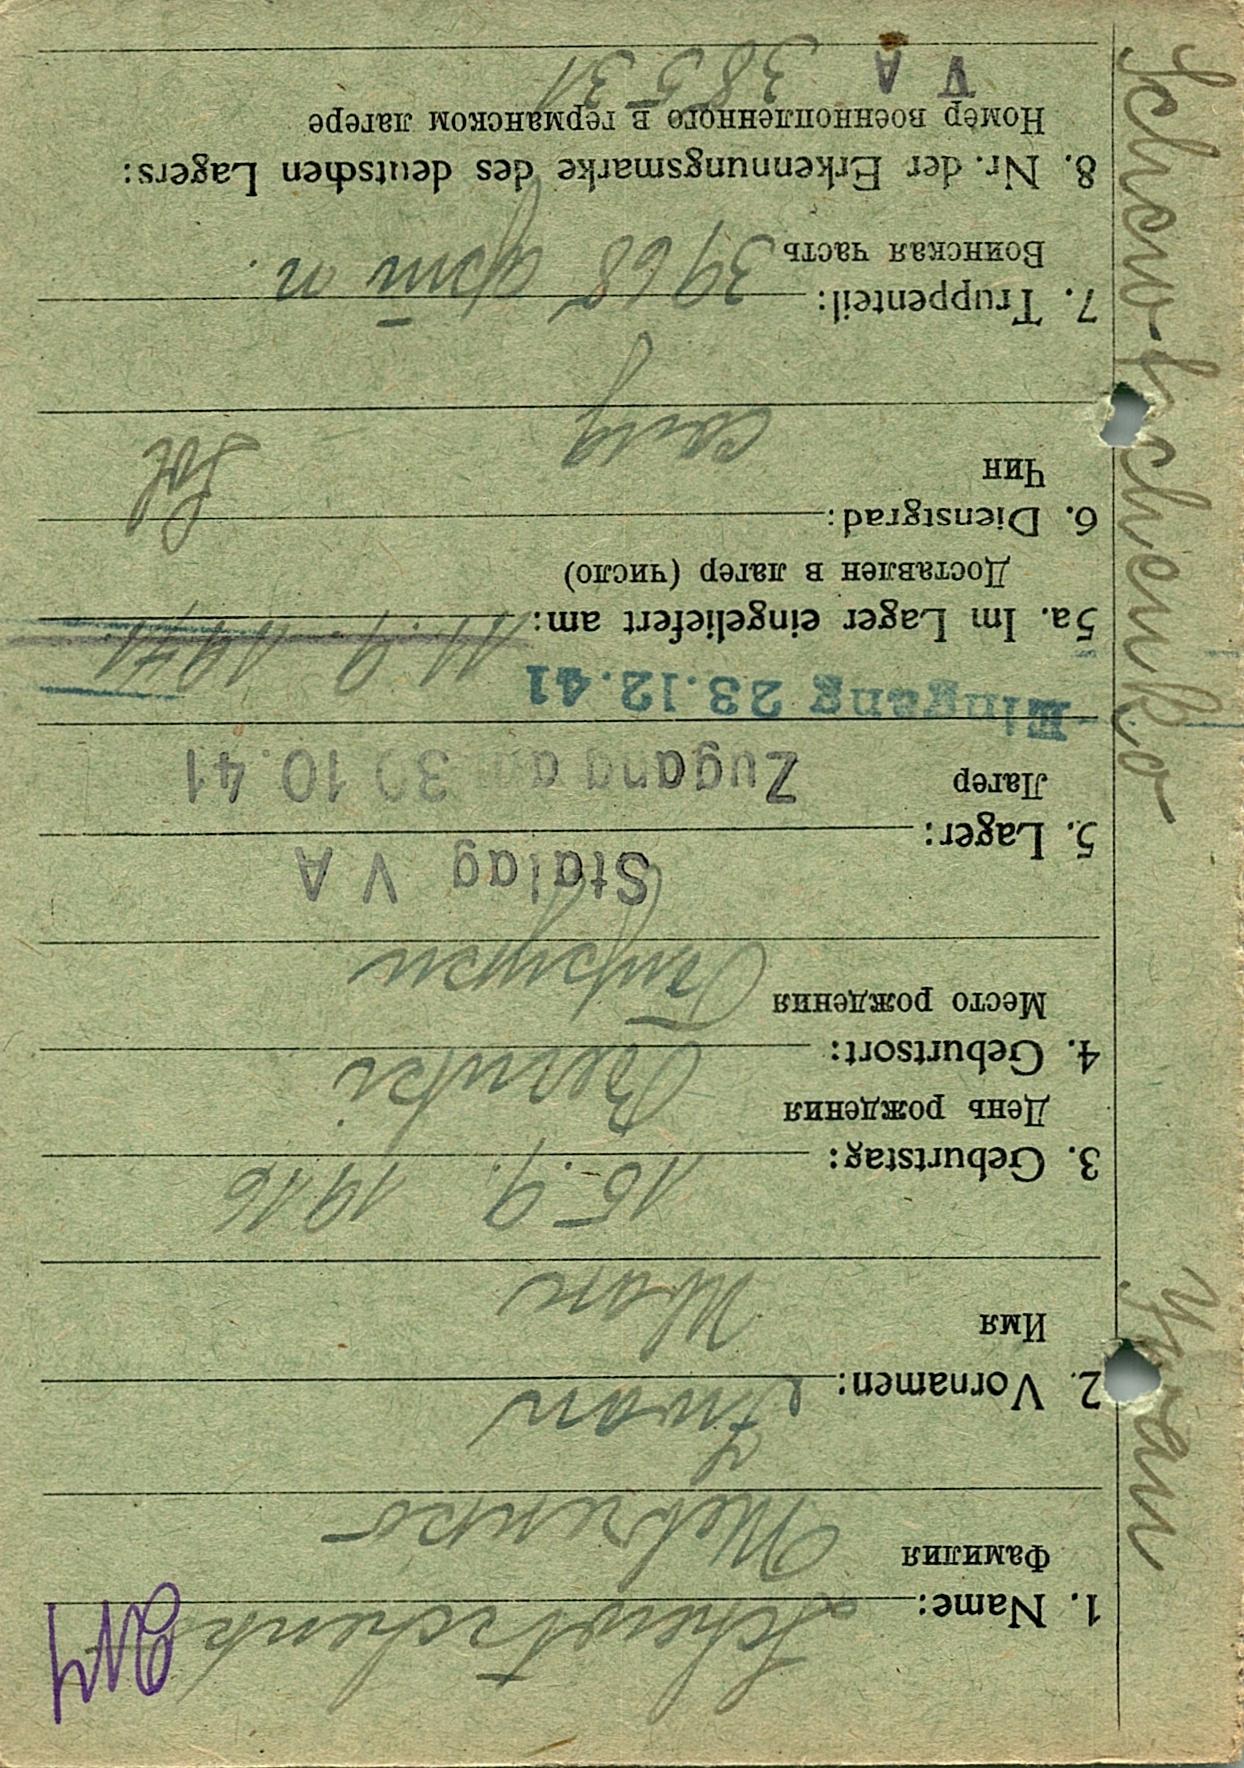 1. Name: Schewtschenko
Фамилия Шевченко
2. Vornamen: Iwan
Имя Иван
3. Geburtstag: 15. 9. 1916
День рождения
4. Geburtsort:
Место рождения
5. Lager: Stalag V A
Лагер Zugang am 30 10. 41
Eingang 23.12.41
5a. Im Lager eingeliefert am: 11. 9. 1941.
Доставлен в лагер (число)
6. Dienstgrad: Sol
Чин солд
7. Truppenteil: 3968
Воинская часть
8. Nr. der Erkennungsmarke des deutschen Lagers:
Номер военнопленного в германском лагере
V A 38531
Schewtschenko Iwan